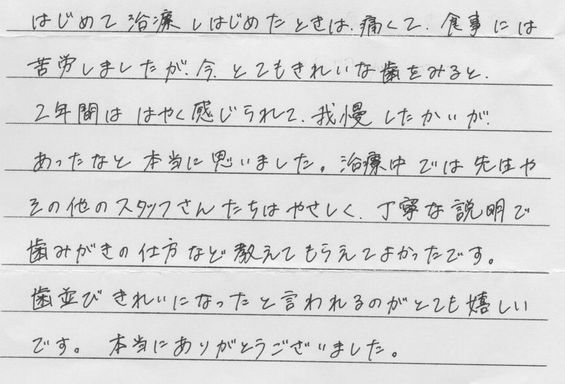 はじめて治療しはじめたときは、痛くて、食事には
苦労しましたが、今、とてもきれいな歯をみると、
2年間は はやく感じられて、我慢したかいが、
あったなと本当に思いました。治療中では先生や
その他のスタッフさんたちはやさしく、丁寧な説明で
歯みがきの仕方など教えてもらえてよかったです。
歯並びきれいになったと言われるのがとても嬉しい
です。 本当にありがとうございました。